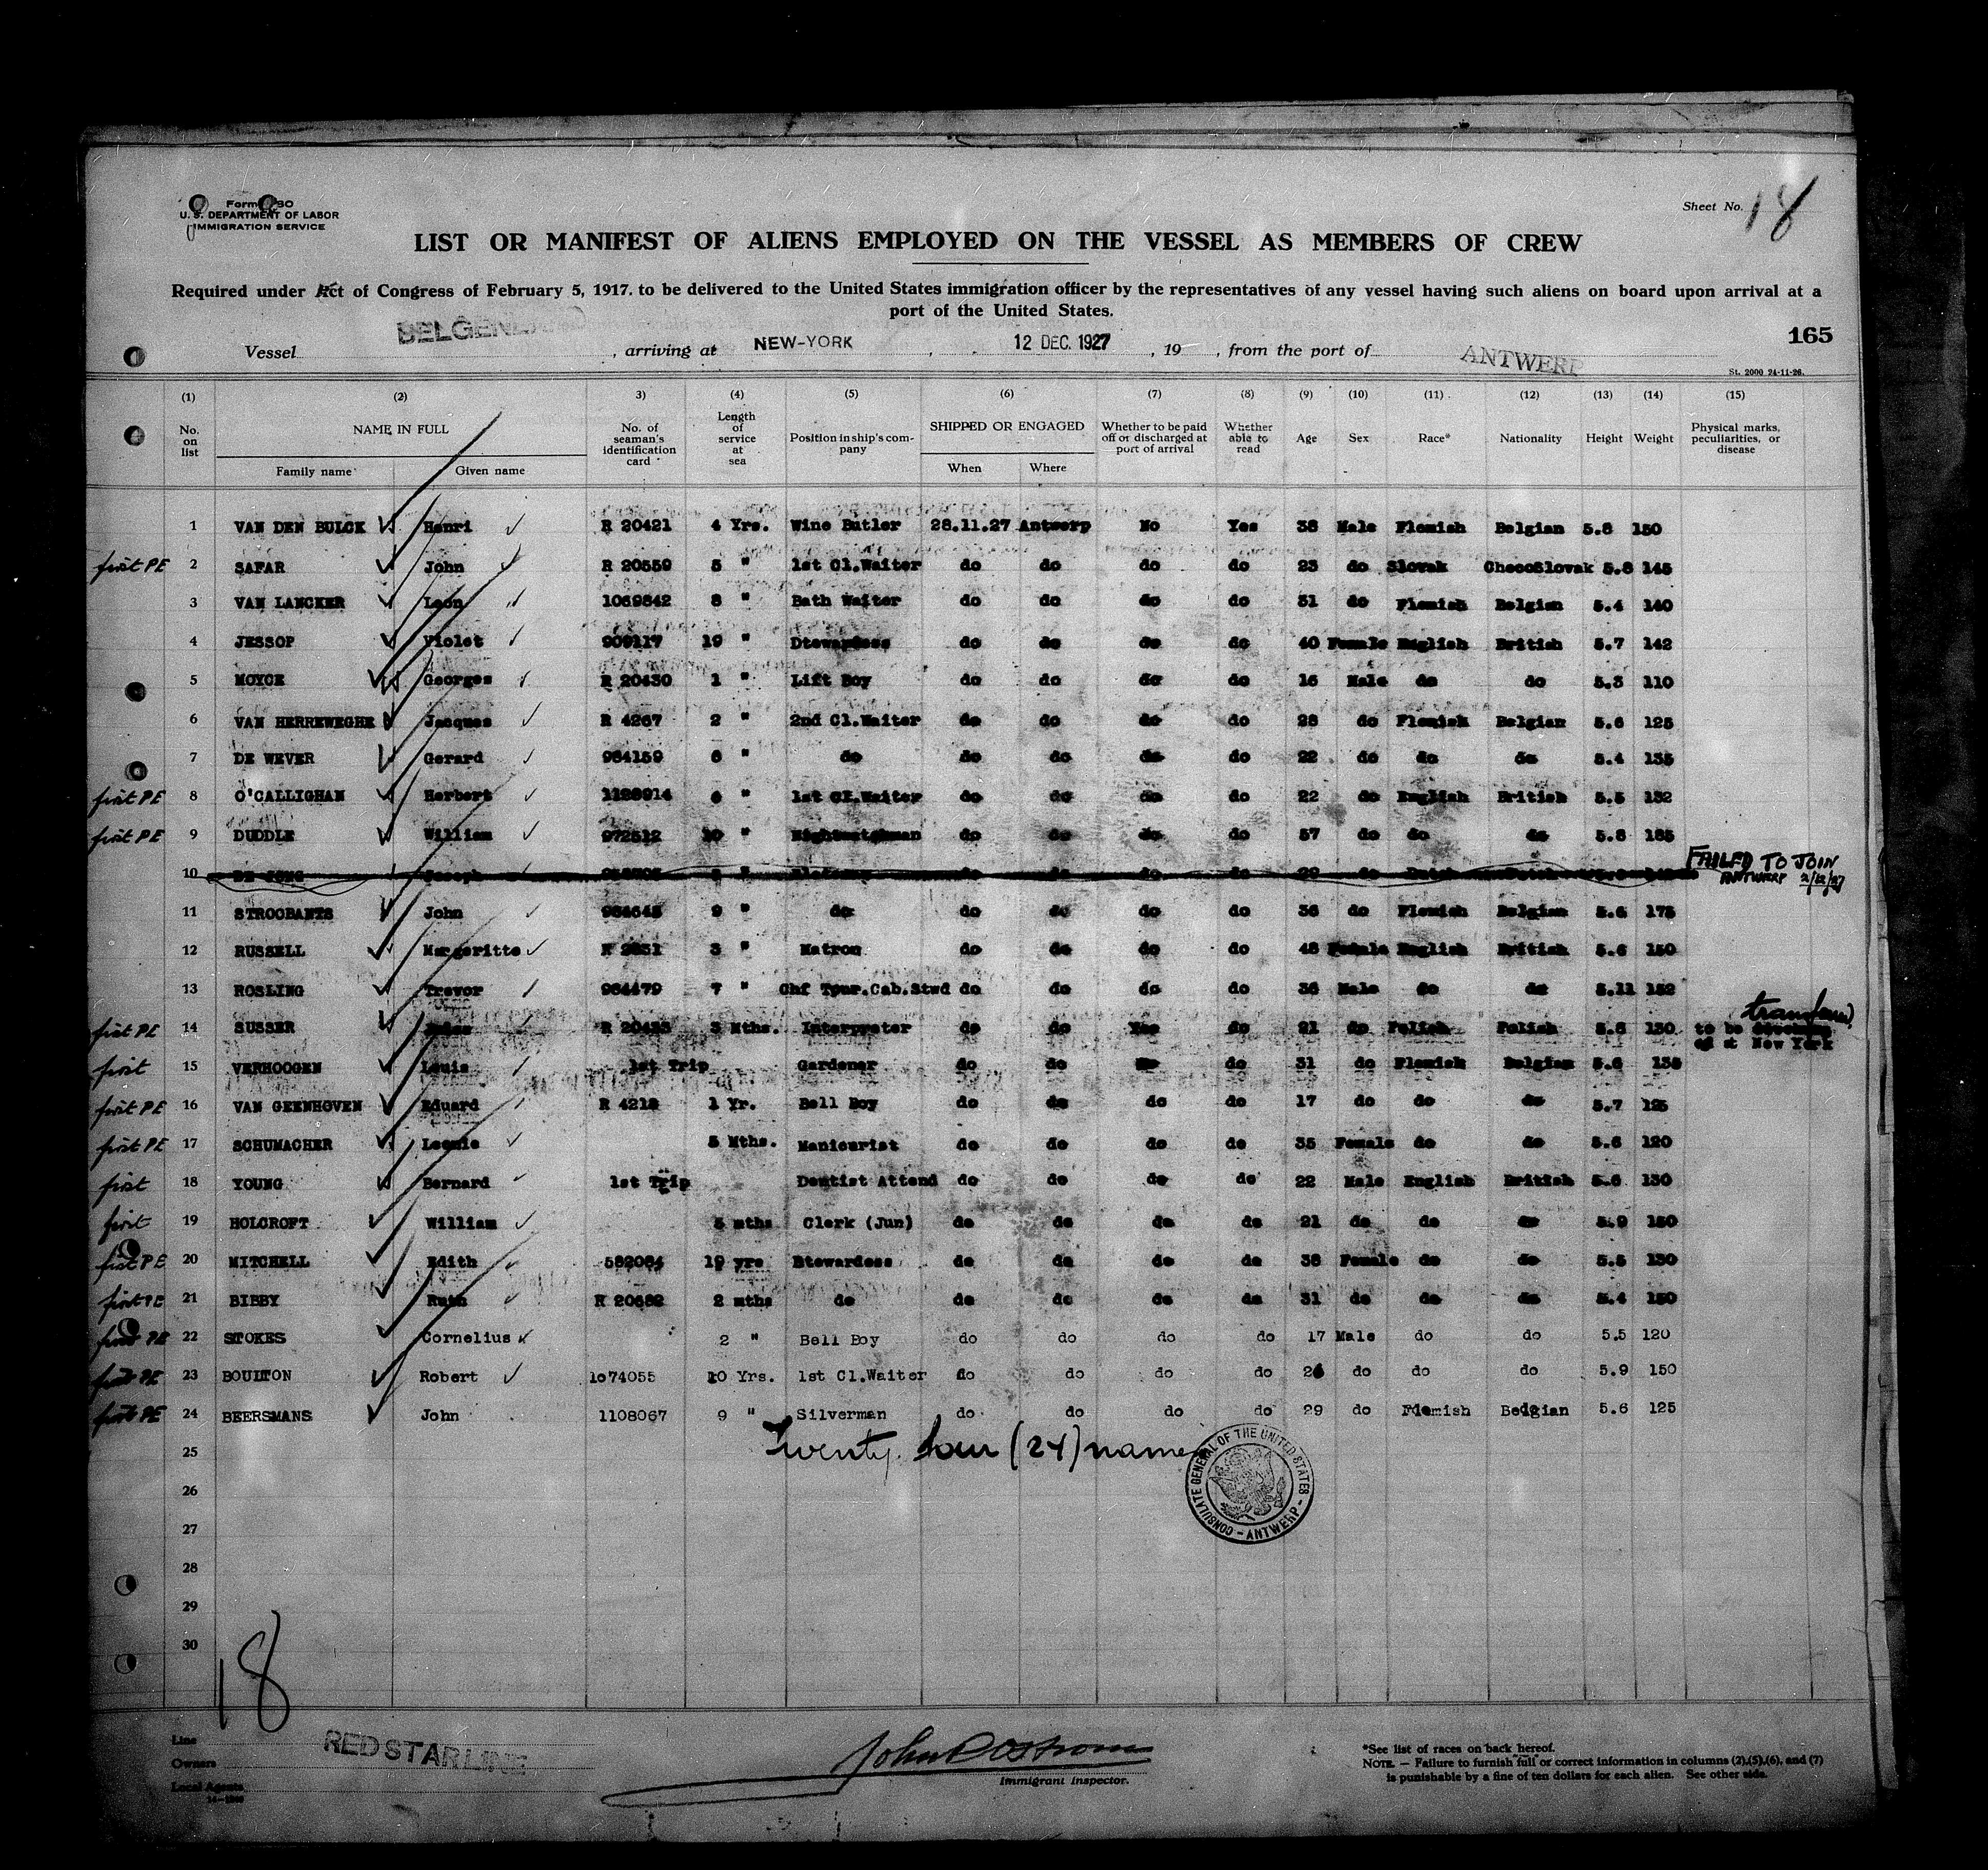 Form
U. S. DEPARTMENT OF LABOR
IMMIGRATION SERVICE
Sheet No. 18
LIST OR MANIFEST OF ALIENS EMPLOYED ON THE VESSEL AS MEMBERS OF CREW
Required under Act of Congress of February 5, 1917. to be delivered to the United States immigration officer by the representatives of any vessel having such aliens on board upon arrival at a
port of the United States.
165
Vessel BELGENLAND, arriving at NEW-YORK, 12 DEC. 1927, 19 , from the port of ANTWERP
St. 2000 24-11-26.
(1) (2) 3) (4) (5) (6) (7) (8) (9) (10) (11) (12) (13) (14) (15)
No. on list NAME IN FULL Family name Given name No. of seaman's identification card Length of service at sea Position in ship's company SHIPPED OR ENGAGED When Where Whether to be paid off or discharged at port of arrival Whether able to read Age Sex Race* Nationality Height Weight Physical marks, peculiarities, or disease
1 VAN DEN BULCK Henri R 20421 4 Yrs. Wine Butler 28.11.27 Antwerp No Yes 38 Male Flemish Belgian 5.8 150
first PE 2 SAFAR John R 20559 5 " 1st Cl.Waiter do do do do 23 do Slovak ChecoSlovak 5.8 145
3 VAN LANCKER Leon 1069842 8 " Bath Waiter do do do do 31 do Flemish Belgian 5.4 140
4 JESSOP Violet 909117 19 " Dtewardess do do do do 40 Female English British 5.7 142
5 MOYCE Georges R 20430 1 " Lift Boy do do do do 16 Male do do 5.3 110
6 VAN HERREWEGHE Jacques R 4267 2 " 2nd Cl.Waiter do do do do 28 do Flemish Belgian 5.6 125
7 DE WEVER Gerard 984159 6 " do do do do do 22 do do do 5.4 135
first PE 8 O'CALLIGHAN Herbert 1128914 6 " 1st Cl.Waiter do do do do 22 do English British 5.5 132
first PE 9 DUDDLE William 972512 20 " Nightwatchman do do do do 57 do do do 5.8 185
10 DE JONG Joseph do do do do do FAILED TO JOIN
ANTWERP 2/12/27
11 STROOBANTS John 984645 9 " do do do do do 36 do Flemish Belgian 5.6 175
12 RUSSELL Margeritte R 2831 3 " Matron do do do do 48 Female English British 5.6 150
13 ROSLING Trevor 984479 7 " Chf Tour.Cab.Stwd do do do do 36 Male do do 5.11 152
first PE 14 SUSSER 3 Mths. Interpreter do do Yes do 21 do Polish Polish 5.8 130 transferred
to be
at New York
first 15 VERHOOGEN Louis 1st Trip Gardener do do No do 31 do Flemish Belgian 5.6 135
first PE 16 VAN GEENHOVEN Eduard R 4218 1 Yr. Bell Boy do do do do 17 do do do 5.7 125
first PE 17 SCHUMACHER Leonie 5 Mths. Manicurist do do do do 35 Female do do 5.6 120
first 18 YOUNG Bernard 1st Trip Dentist Attend do do do do 22 Male English British 5.6 130
first 19 HOLCROFT William 5 mths Clerk (Jun) do do do do 21 do do do 5.9 150
first PE 20 MITCHELL Edith 582064 19 yrs Stewardess do do do do 38 Female do do 5.5 130
first PE 21 BIBBY Ruth R 20682 2 mths do do do do do 31 do do do 5.4 150
first PE 22 STOKES Cornelius 2 " Bell Boy do do do do 17 Male do do 5.5 120
first PE 23 BOULTON Robert 1074055 10 Yrs. 1st Cl.Waiter do do do do 26 do do do 5.9 150
first PE 24 BEERSMANS John 1108067 9 " Silverman do do do do 29 do Flemish Belgian 5.6 125
Twenty four (24) names
25
26
27
28
29
30
CONSULATE GENERAL OF THE UNITED STATES - ANTWERP -
18
Line
Owners
Local Agents
RED STAR LINE
Immigrant Inspector.
*See list of races on back hereof.
NOTE. — Failure to furnish full or correct information in columns (2),(5),(6), and (7)
is punishable by a fine of ten dollars for each alien. See other side.